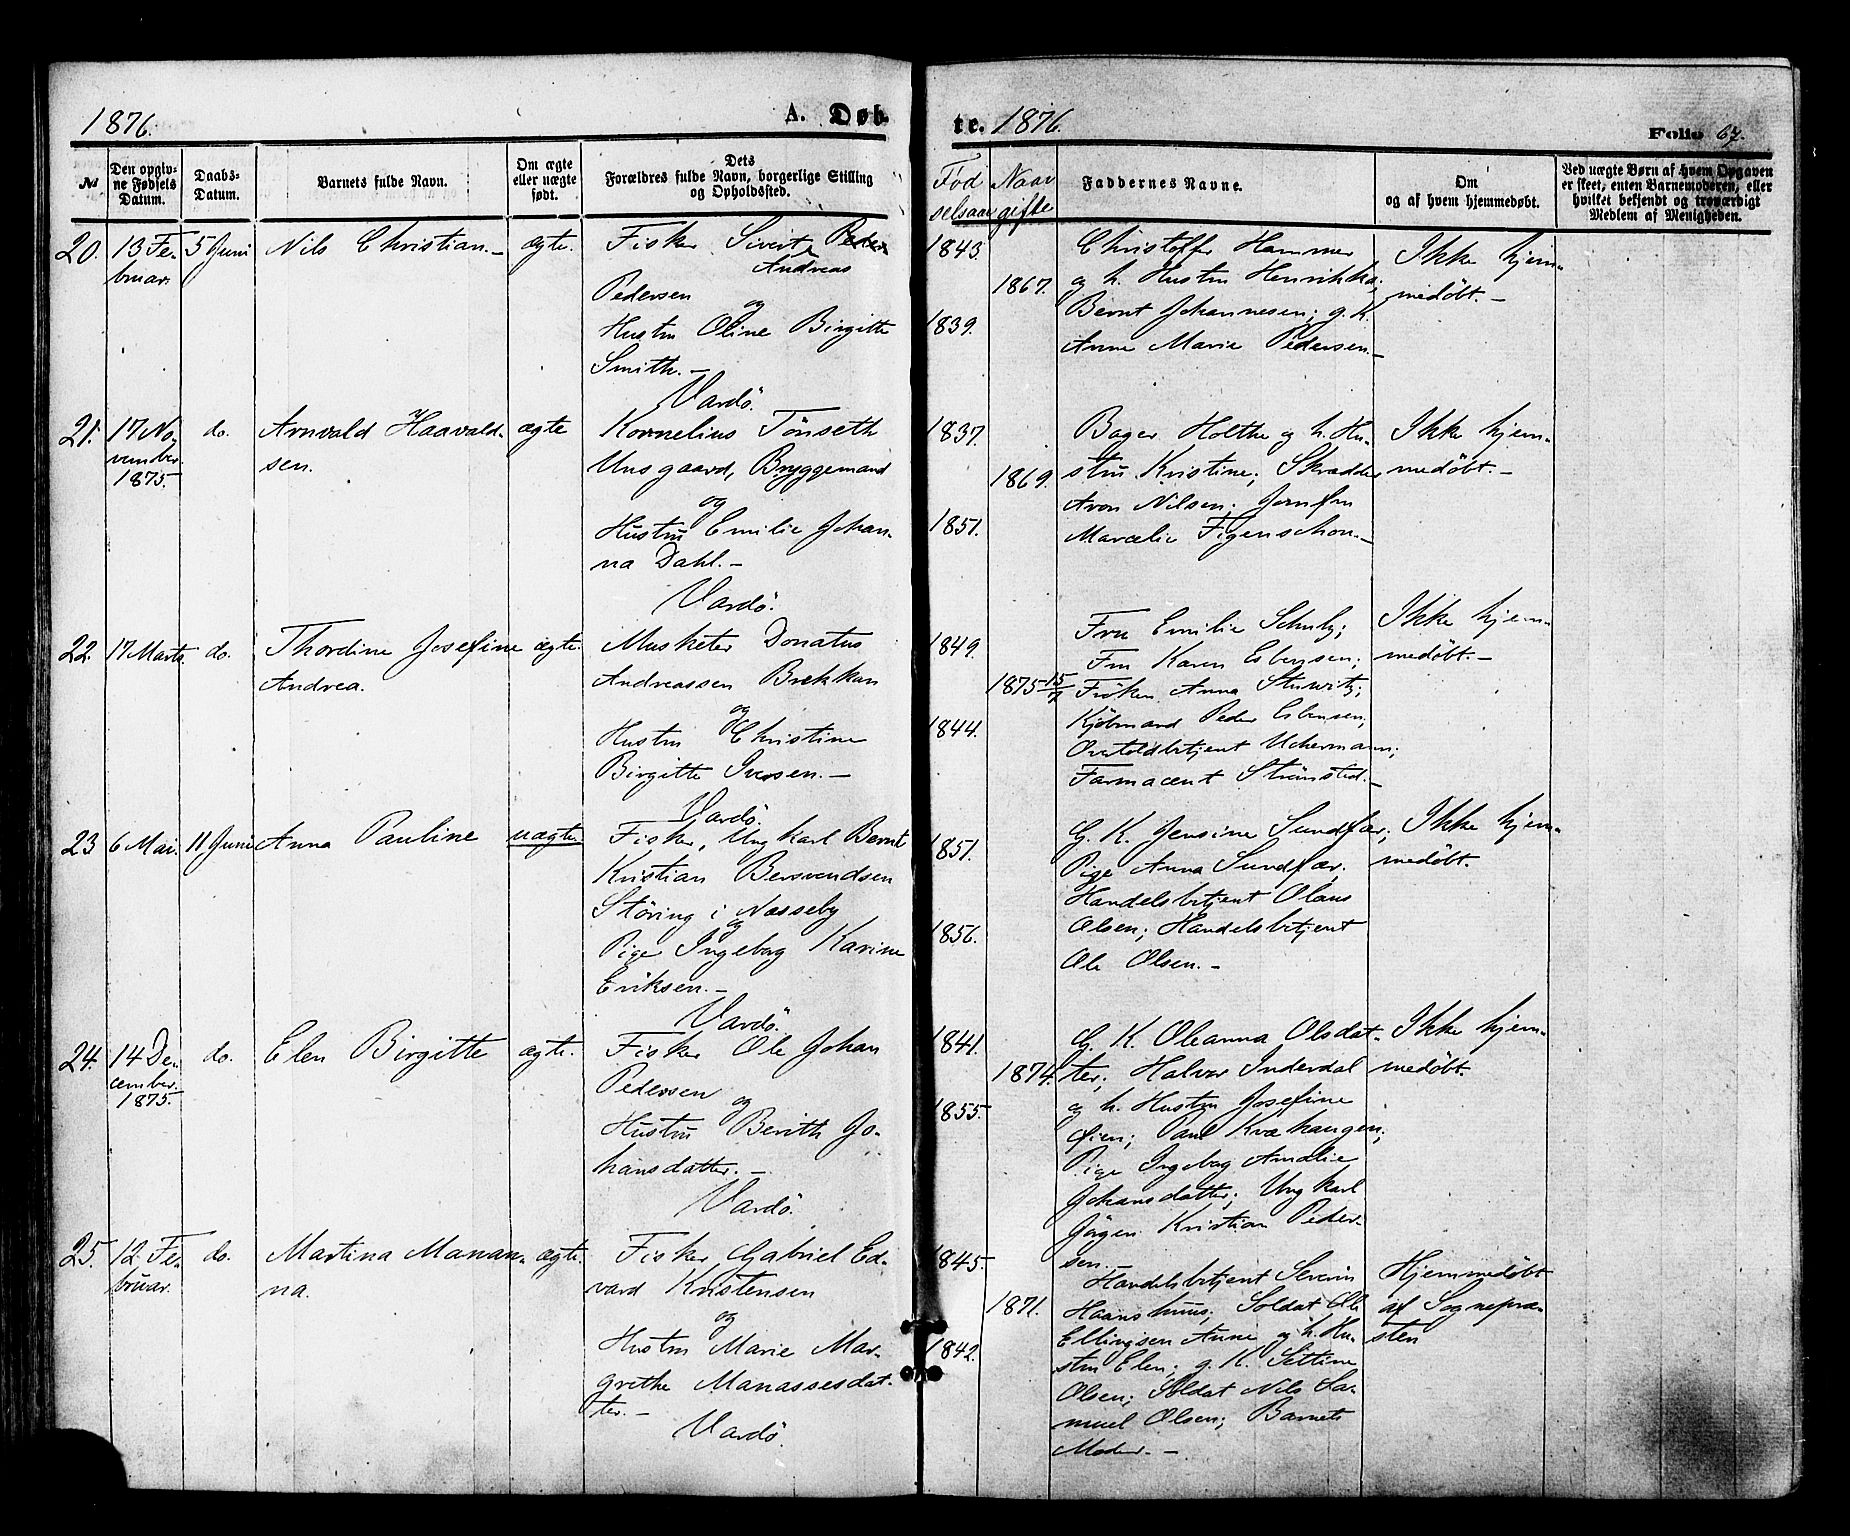 1876.
A. Døb-
te. 1876.
Folio 67.
№
Den opgiv-
ne Fødsels
Datum.
Daabs-
Datum.
Barnets fulde Navn.
Om ægte
eller uægte
født.
Dets
Forældres fulde Navn, borgerlige Stilling
og Opholdssted.
Fød
selsaar
Naar
gifte
Faddernes Navne.
Om
og af hvem hjemmedøbt.
Ved uægte Børn af hvem Opgaven
er skeet, enten Barnemoderen, eller
hvilket bekjendt og troværdigt
Medlem af Menigheden.
20.
13 Fe-
bruar.
5 Juni
Nils Christian.-
ægte.
Fisker Sivert Peder
Andreas
Pedersen
og
Hustru Oline Birgitte
Smith.-
Vardö.
1843.
1867.
1839.
Christoffer Hammer
og h. Hustru Henrikka;
Bernt Johannesen; g. K.
Anne Marie Pedersen-
Ikke hjem-
medøbt.-
21.
17 No-
vember.
1875.
do.
Arnvald Haavald-
sen.
ægte
Kornelius Tönseth
Unsgaard, Bryggemand
og
Hustru Emilie Johan-
na Dahl.-
Vardö.
1837.
1869.
1851.
Bager Holthe og h. Hu-
stru Kristine; Skrædder
Aron Nilsen; Jomfru
Marcelie Figenschou-
Ikke hjem-
medøbt.-
22.
17 Marts
do.
Thordine Josefine
Andrea.
ægte.
Musketer Donatus
Andreassen Brekkan
og
Hustru Christine
Birgitte Iversen.-
Vardö.
1849.
1875 15/7
1844.
Fru Emilie Schulz;
Fru Karen Esbensen;
Fröken Anna Stuwitz;
Kjöbmand Peder Esbensen;
Overtoldbetjent Uchermann;
Farmaceut Strömsted.-
Ikke hjem-
medøbt.-
23
6 Mai.
11 Juni
Anna Pauline
uægte.
Fisker, Ungkarl Bernt
Kristian Bersvendsen
Störing i Næsseby
og
Pige Ingeborg Karine
Eriksen.-
Vardö.
1851.
1856.
G. K. Jensine Sundfær;
Pige Anna Sundfær.
Handelsbetjent Olaus
Olsen; Handelsbetjent
Ole Olsen.-
Ikke hjem-
medøbt.
24.
14 De-
cember.
1875.
do.
Elen Birgitte
ægte.
Fisker Ole Johan
Pedersen
og
Hustru Berith Jo-
hansdatter.-
Vardö.
1841.
1874.
1855.
G. K. Oleanna Olsdat-
ter; Halvor Inderdal
og h. Hustru Josefine
Öien; Paul Kvæhangen;
Pige Ingeborg Amalie
Johansdatter; Ungkarl
Jörgen Kristian Peder-
sen.
Ikke hjem-
medøbt.
25.
12 Fe-
bruar.
do.
Martina Manan-
na.
ægte.
Fisker Gabriel Ed-
vard Kristensen
og
Hustru Marie Mar-
grethe Manassesdat-
ter.-
Vardö.
1845.
1871.
1842.
Handelsbetjent Severin
Haanshuus; Soldat Ole
Ellingsen Aune og h. Hu-
stru Elen; g. K. Settine
Olsen; Soldat Nils Sa-
muel Olsen; Barnets
Moder.-
Hjemmedøbt
af Sognepræ-
sten